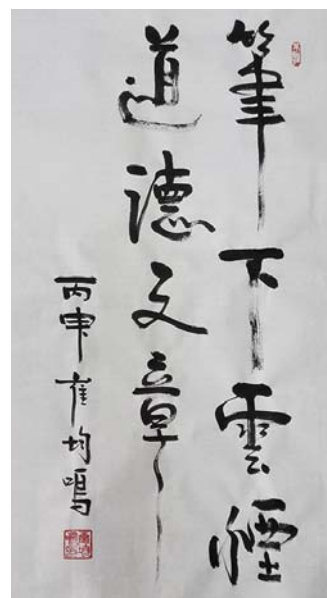 筆下雲煙
道德文章
丙申崔均鳴